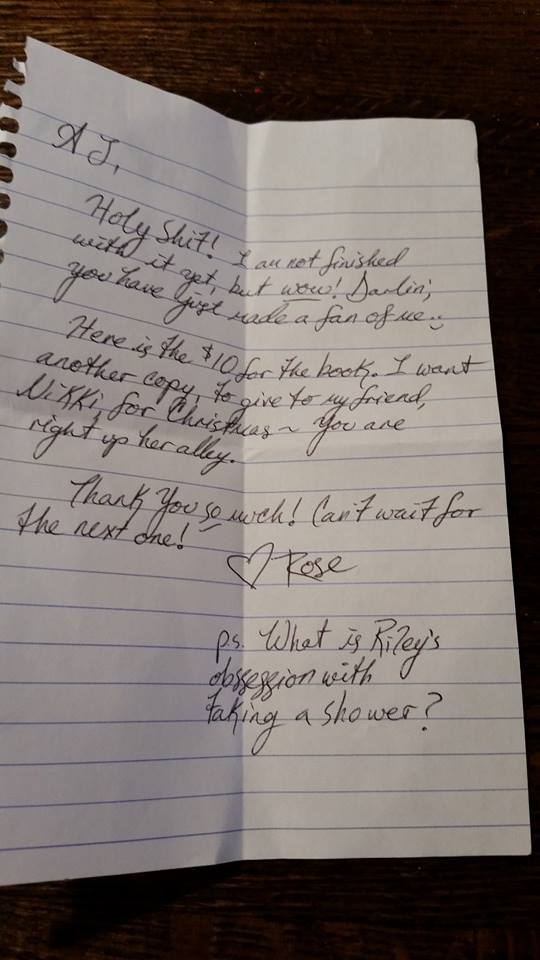 AJ,
Holy Shit! I am not finished
with it yet, but wow! Darlin',
you have just made a fan of me :)
Here is the $10 for the book. I want
another copy, to give to my friend,
Nikki, for Christmas ~ You are
right up her alley.
Thank You so much! Can't wait for
the next one!
♡ Rose
p.s. What is Riley's
obssession with
taking a shower?